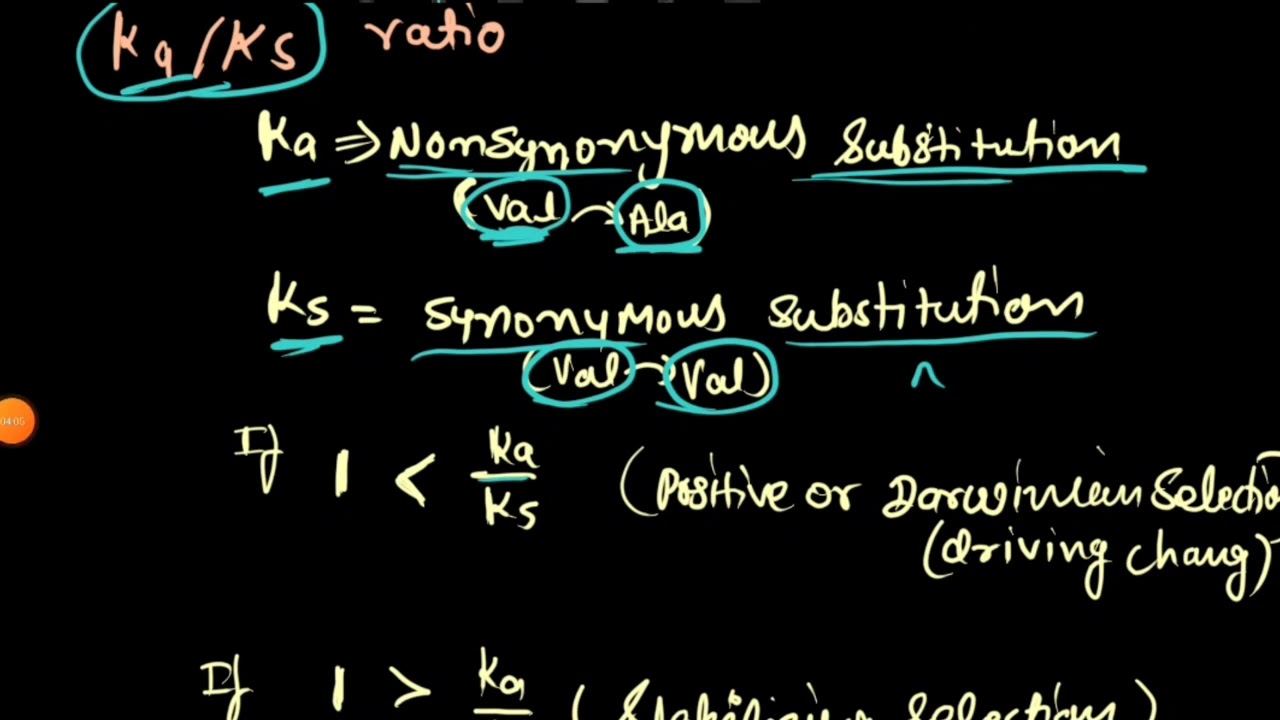 Ka/Ks ratio
Ka ⇒ Nonsynonymous Substitution
(Val → Ala)
Ks = Synonymous Substitution
(Val → Val)
04:05
If 1 < Ka/Ks (Positive or Darwinian Selectio
(driving chang)
If 1 > Ka (Stabilizing Selections)